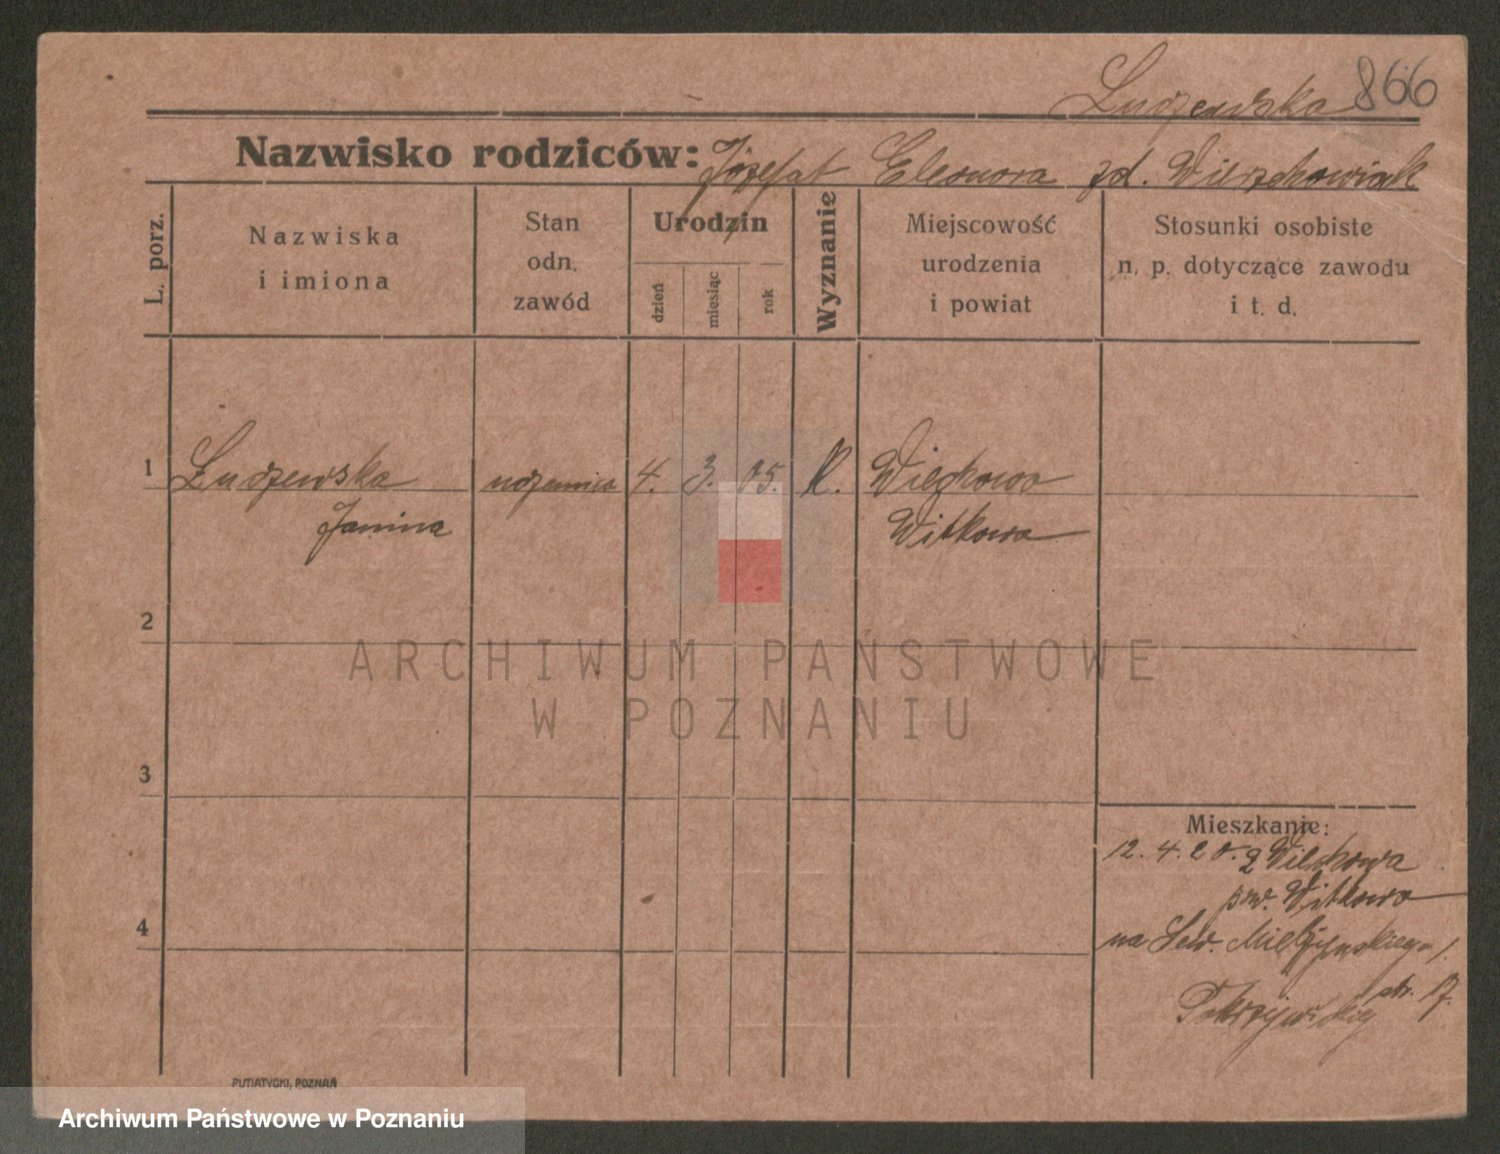 Ludzewska 866
Nazwisko rodziców: Józefat Eleonora zd. Wierzchowiak
L. porz.
Nazwiska
i imiona
Stan
odn.
zawód
Urodzin
dzień
miesiąc
rok
Wyznanie
Miejscowość
urodzenia
i powiat
Stosunki osobiste
n. p. dotyczące zawodu
i t. d.
1 Ludzewska 4. 3. 05. R.
Janina Witkowo
2
ARCHIWUM PAŃSTWOWE
W POZNANIU
3
Mieszkanie:
12. 4. 2
pow. Witkowo
4
na Sew. Mielżyńskiego
str. 17.
PUTIATYCKI, POZNAŃ
Archiwum Państwowe w Poznaniu